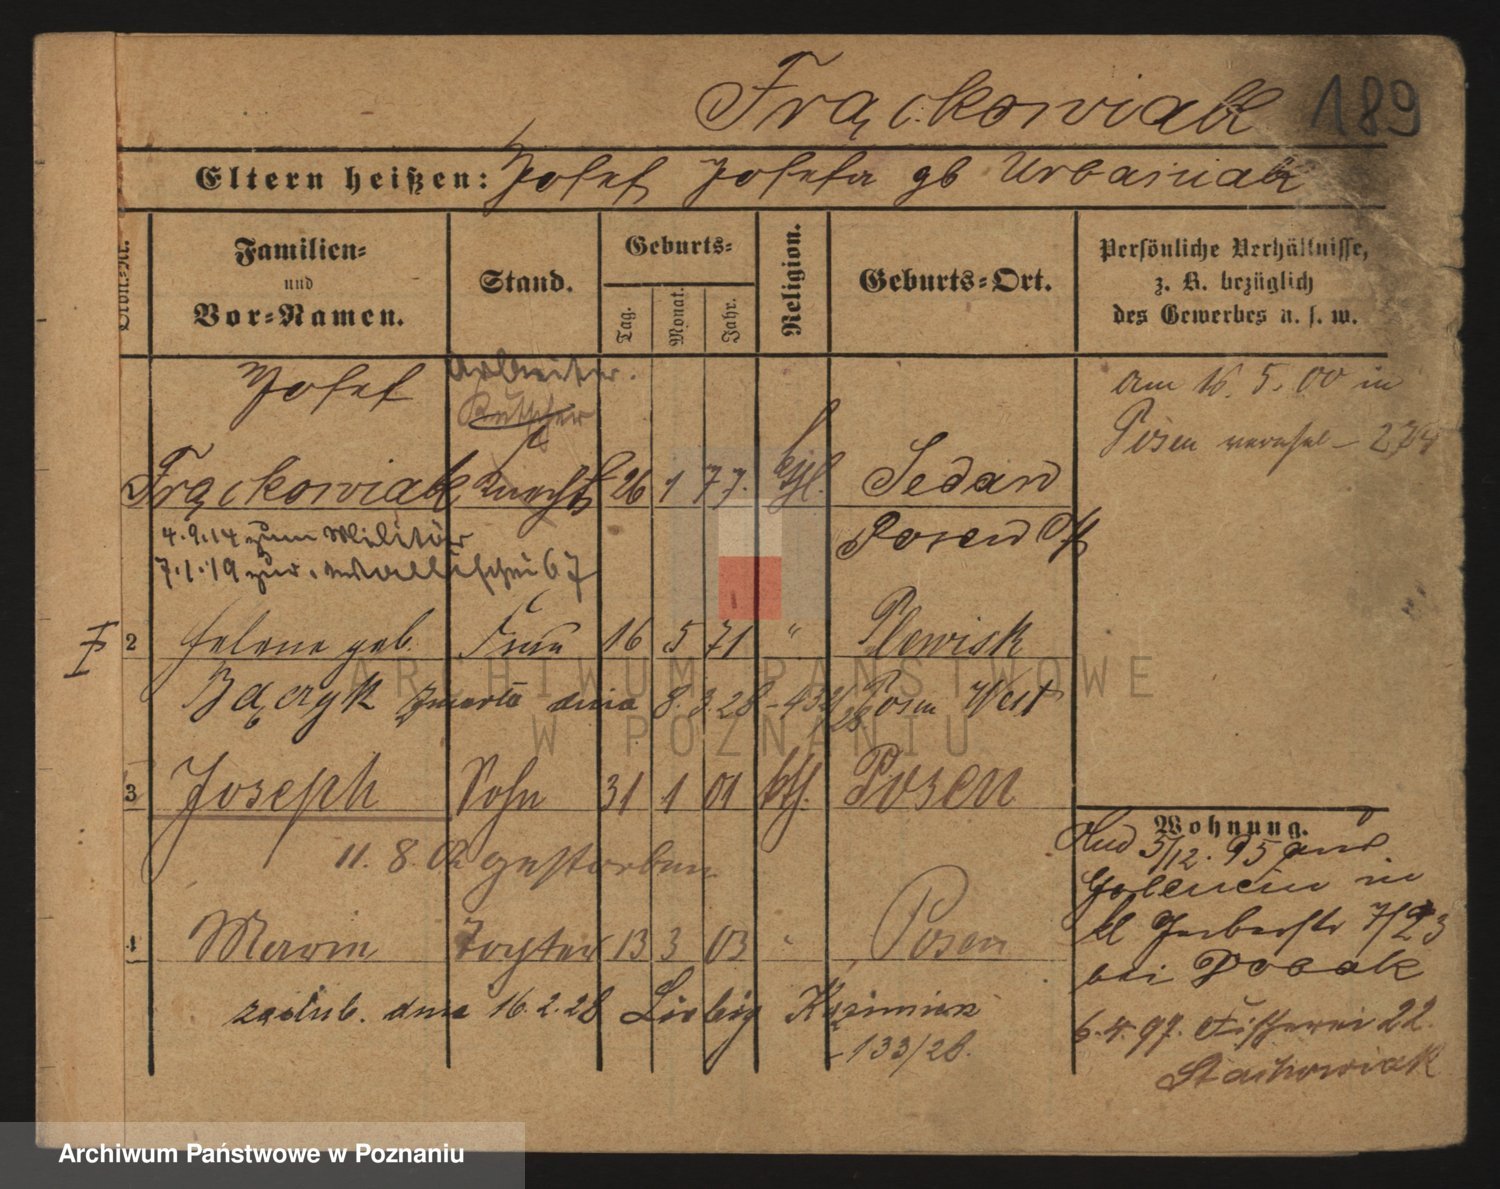 Frąckowiak 189
Eltern heißen: Josef Josefa gb Urbaniak
Ordn.-Nr.
Familien-
und
Vor-Namen.
Stand.
Geburts-
Tag.
Monat.
Jahr.
Religion.
Geburts-Ort.
Persönliche Verhältnisse,
z. B. bezüglich
des Gewerbes u. s. w.
Josef Arbeiter.
Kutscher
am 16. 5. 00 in
Posen verehel - 274
Frąckowiak Knecht 26 1 77. kthl. Sedan
4.9.14 zum Militär Posen Ost
7.1.19 zur. Wallischei 67
2 Helene geb. Frau 16 5 71 " Plewisk
Bączyk zmarła dnia 8.3.28 - Posen West
3 Joseph Sohn 31 1 01 kth. Posen
11. 8. 02 gestorben
4 Marie Tochter 13 3 03 " Posen
zaślub. dnia 16.2.28 Liebig Kazimierz
- 133/28.
Wohnung.
5/12. 95 aus
Golencin in
kl Gerberstr 7/
bei
6.4.97. Fischerei 22.
Stachowiak
ARCHIWUM PAŃSTWOWE
W POZNANIU
Archiwum Państwowe w Poznaniu